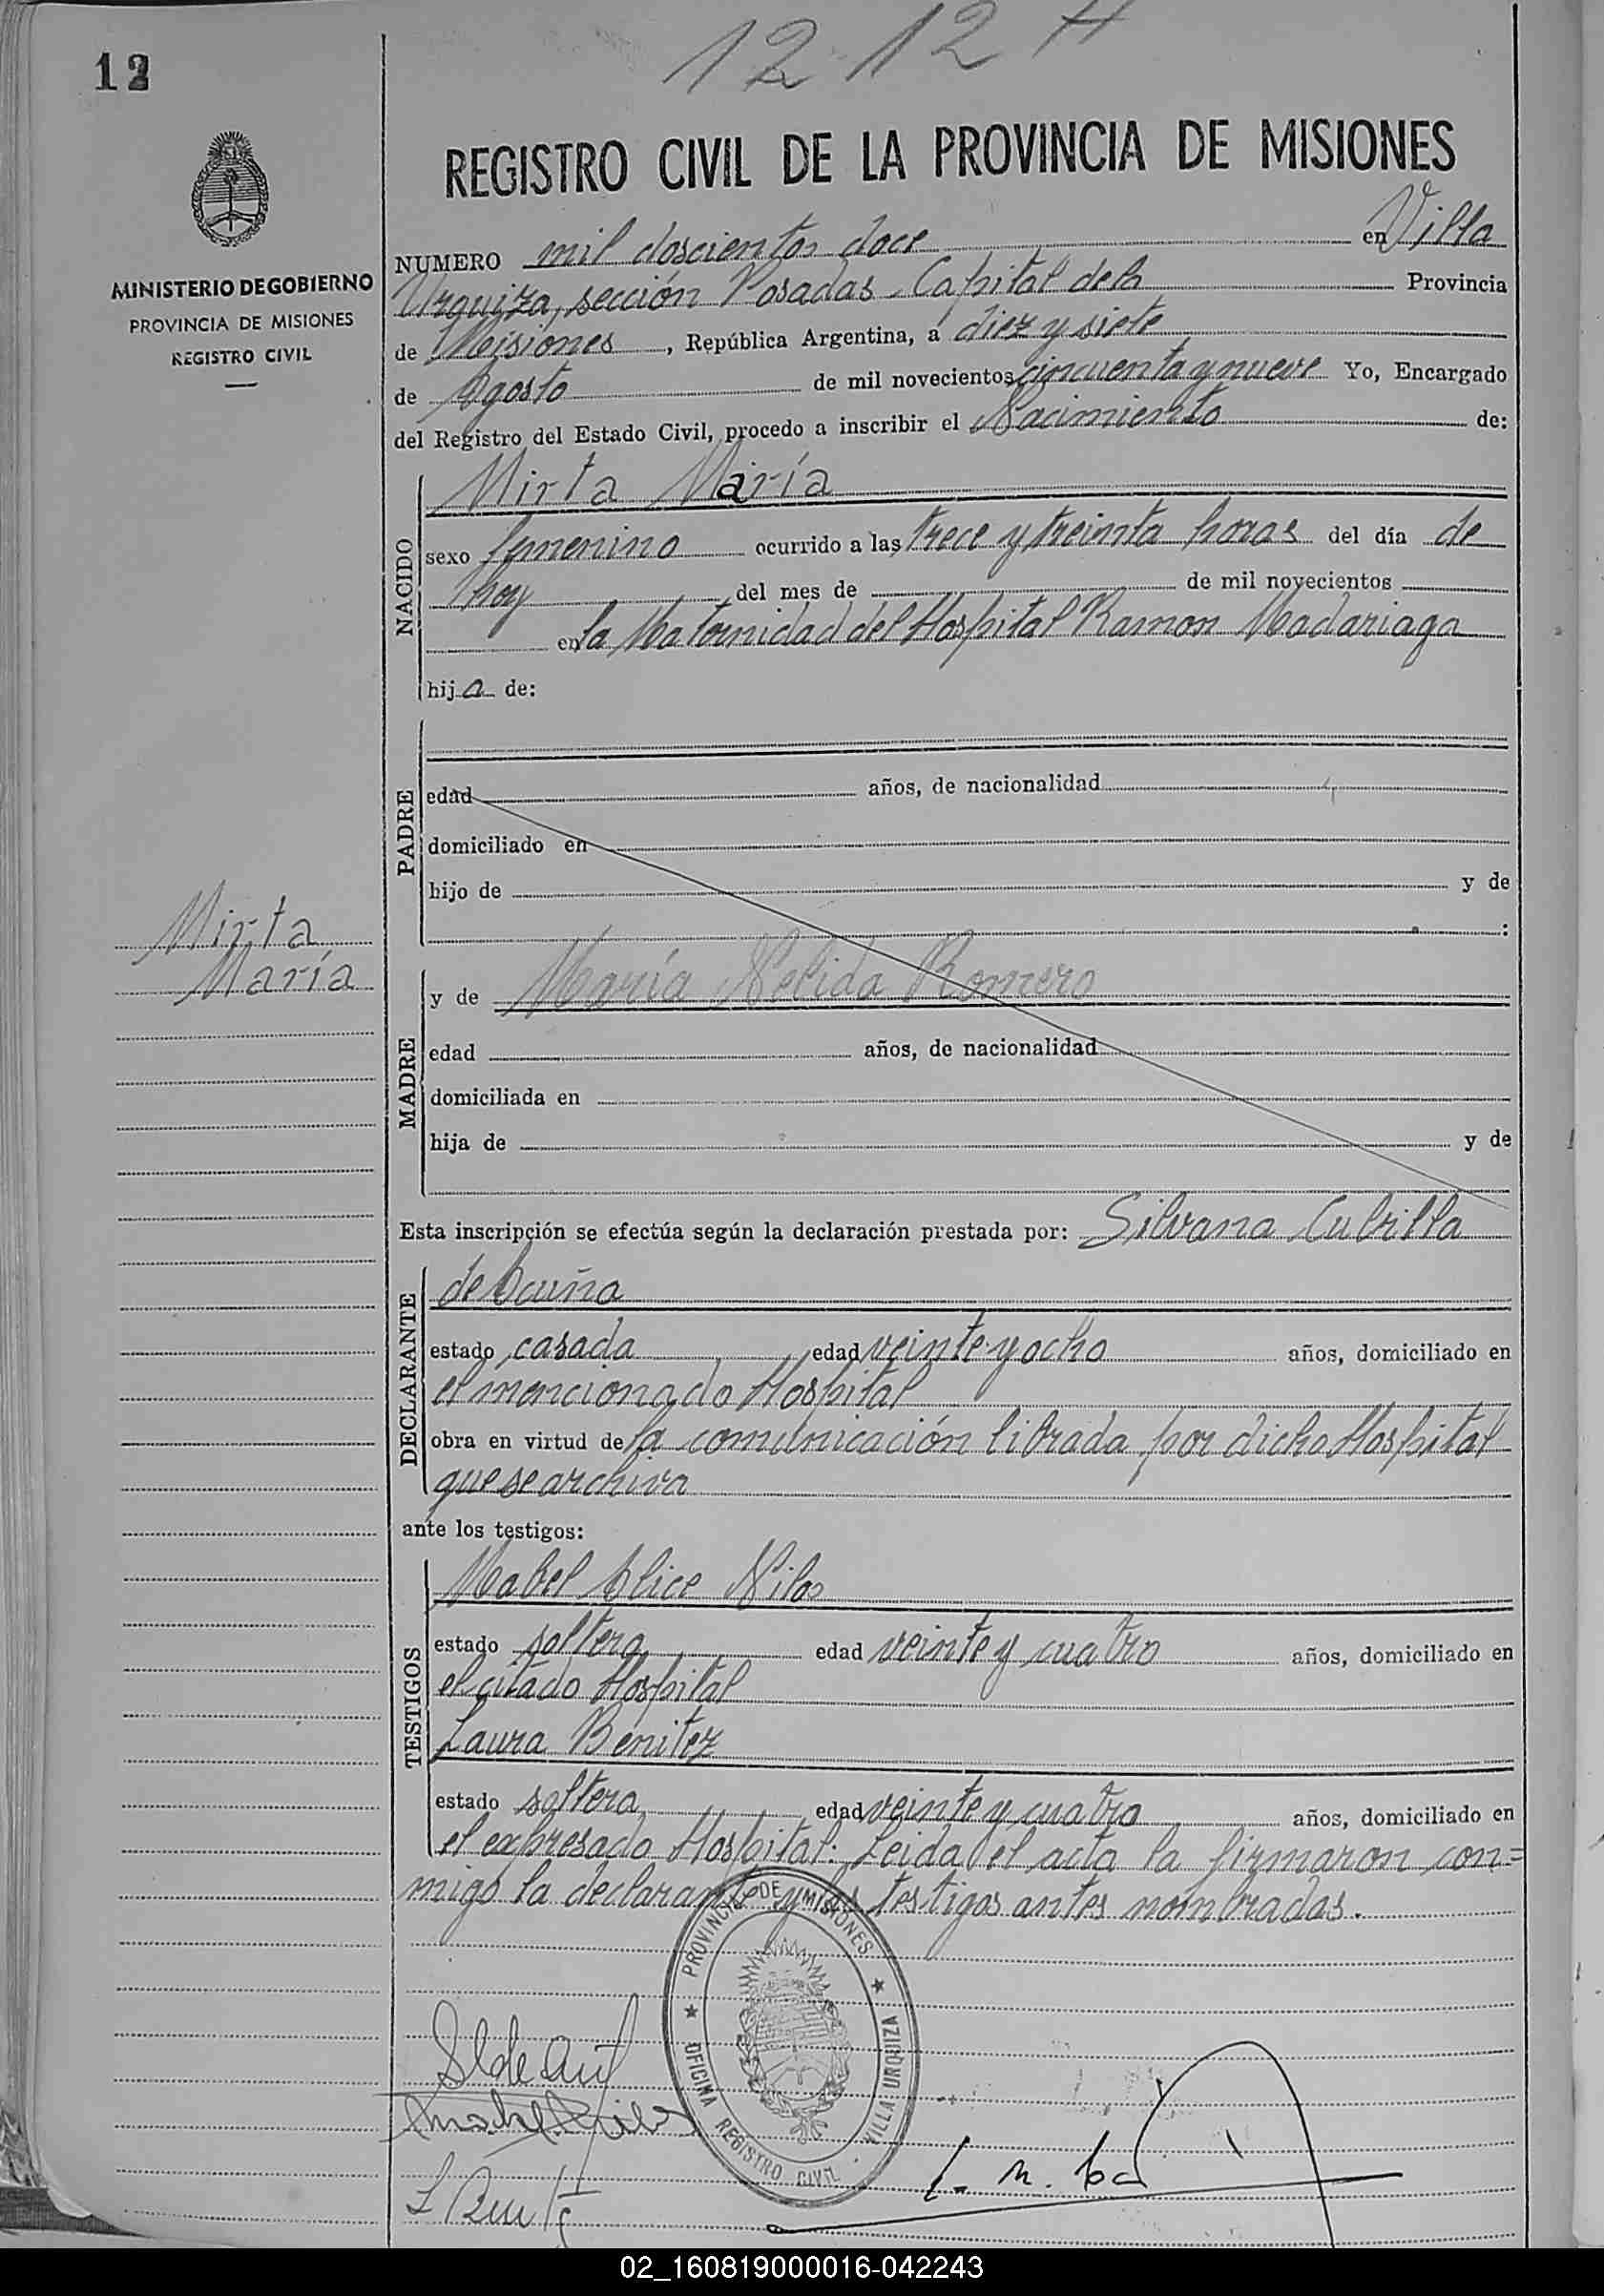 12
12-12 H
REGISTRO CIVIL DE LA PROVINCIA DE MISIONES
MINISTERIO DE GOBIERNO
PROVINCIA DE MISIONES
REGISTRO CIVIL
NUMERO mil doscientos doce en Villa
Urquiza, sección Posadas. Capital de la Provincia
de Misiones, República Argentina, a diez y siete
de Agosto de mil novecientos cincuenta y nueve Yo, Encargado
del Registro del Estado Civil, procedo a inscribir el Nacimiento de:
NACIDO
Mirta María
sexo femenino ocurrido a las trece y treinta horas del día de
hoy del mes de de mil novecientos
en la Maternidad del Hospital Ramon Madariaga
hija de:
PADRE
edad años, de nacionalidad
domiciliado en
hijo de y de
:
Mirta
María
MADRE
y de María Nelida Romero
edad años, de nacionalidad
domiciliada en
hija de y de
Esta inscripción se efectúa según la declaración prestada por: Silvana Cubilla
DECLARANTE
de Acuña
estado casada edad veinte y ocho años, domiciliado en
el mencionado Hospital
obra en virtud de la comunicación librada por dicho Hospital
que se archiva
ante los testigos:
TESTIGOS
Mabel Alice
estado soltera edad veinte y cuatro años, domiciliado en
el citado Hospital
Laura Benitez
estado soltera edad veinte y cuatro años, domiciliado en
el expresado Hospital: Leida el acta la firmaron con=
migo la declarante y los testigos antes nombradas.
PROVINCIA DE MISIONES
OFICINA REGISTRO CIVIL - VILLA URQUIZA
02_160819000016-042243